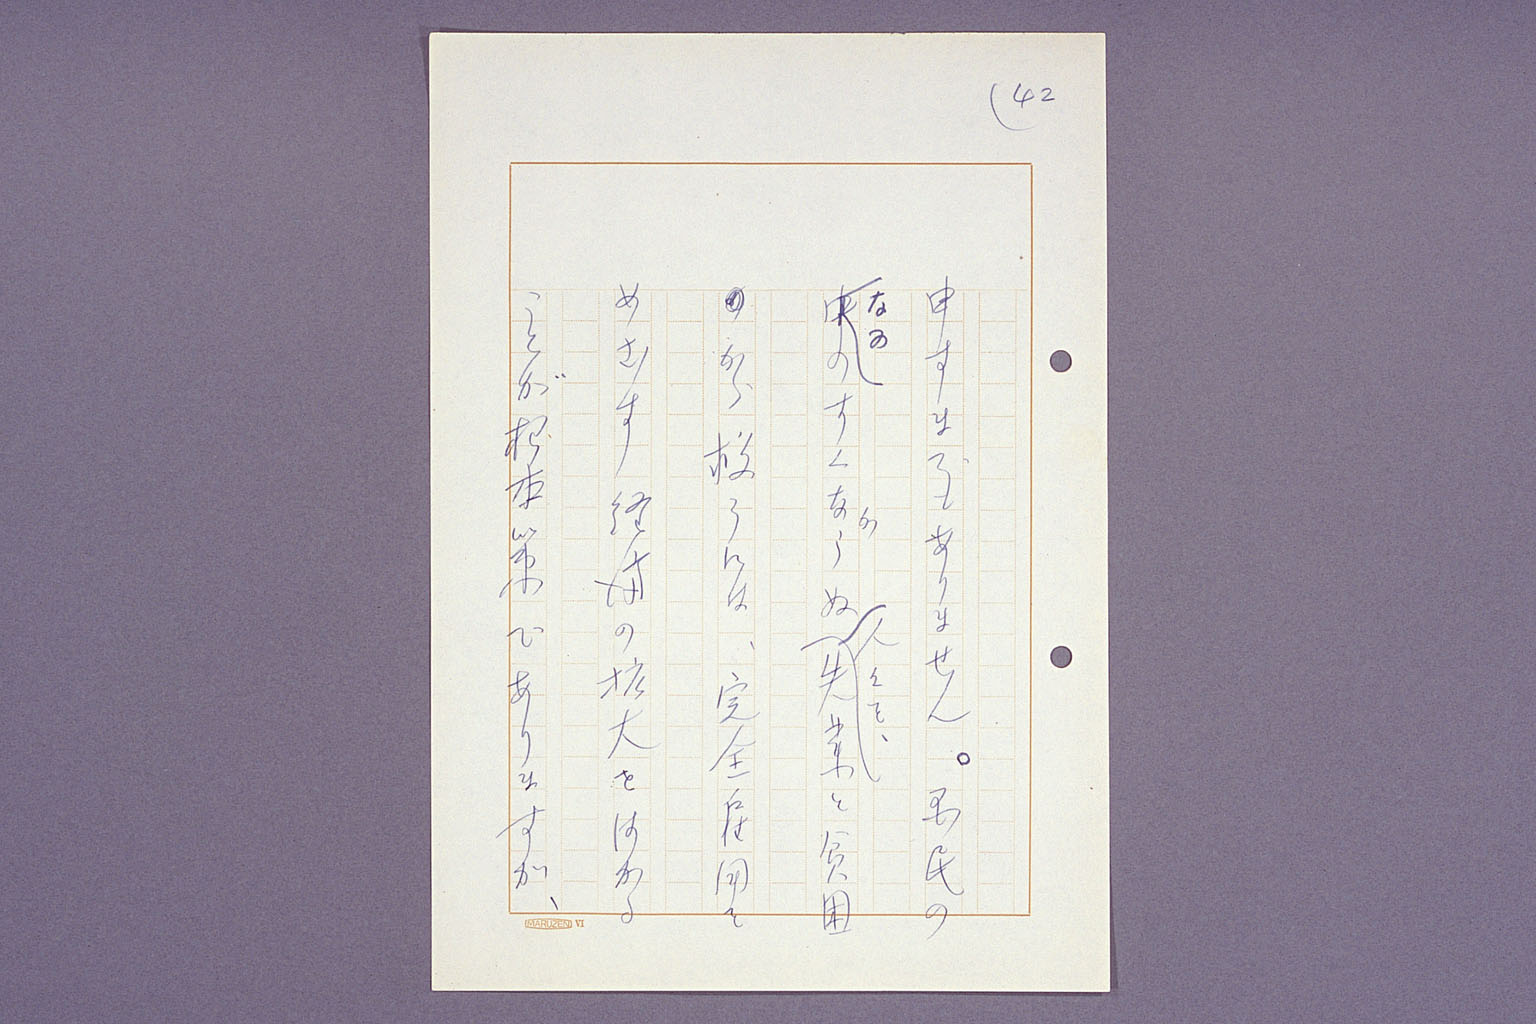 (42
申すまでもありません。国民の
なの
か
人々を、
中のすくならぬ失業と貧困
から救うには、完全雇用を
めざす経済の拡大をはかる
ことが根本策でありますが、
MARUZEN VI